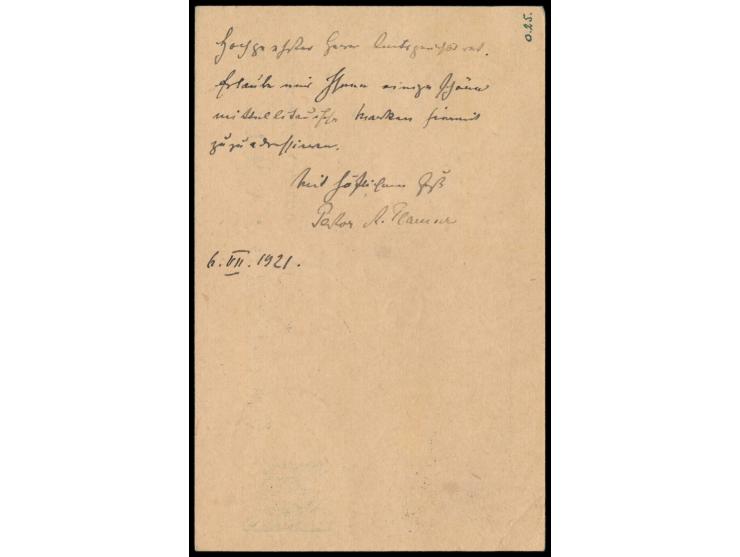 Hochgeehrter Herr Amtsgerichtsrat.
Erlaube mir Ihnen einige schöne
mittellitauische Marken hiermit
zuzuadressieren.
Mit höflichem Gruß
Pastor A.
6. VII. 1921.
0.25.